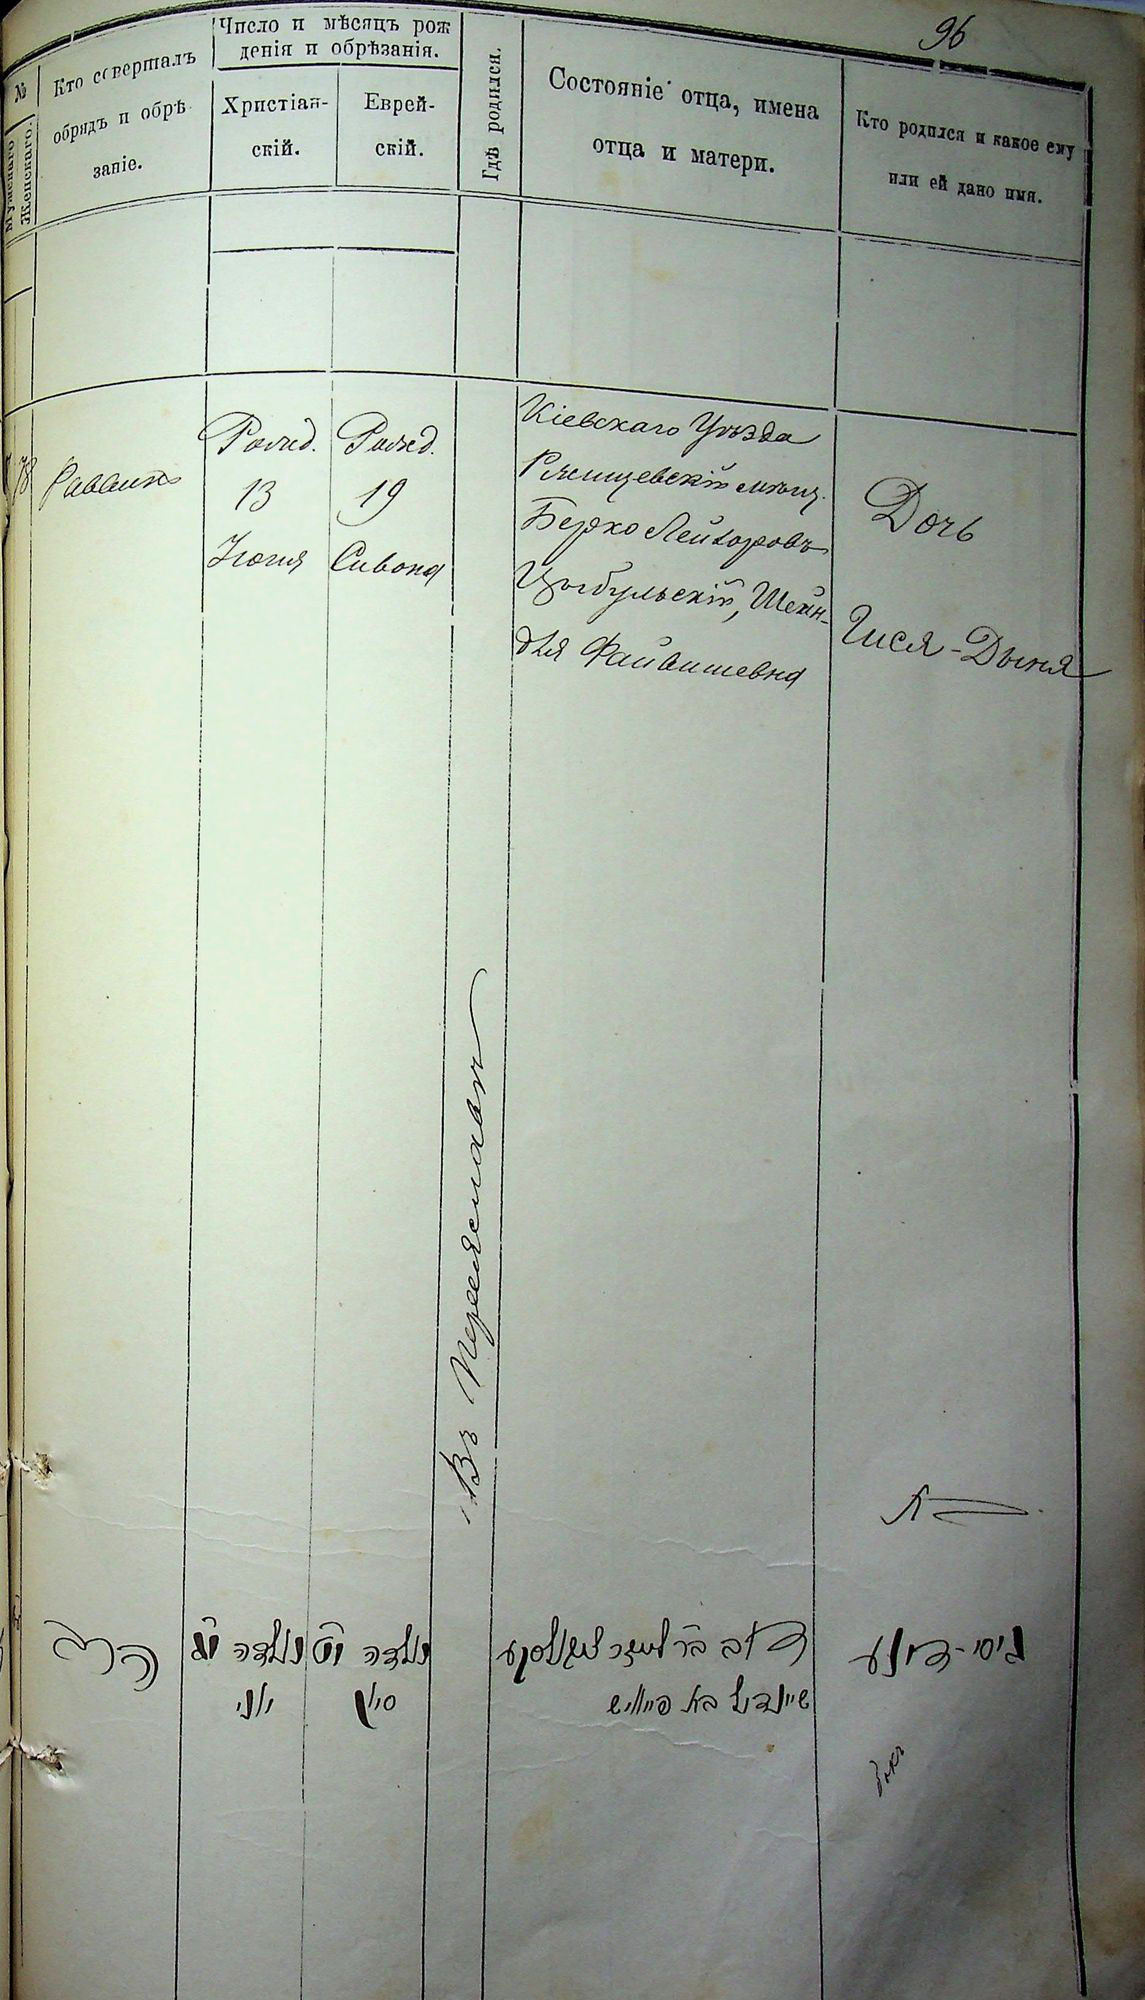 96
№
Мужскаго
Женскаго.
Кто совершалъ
обрядъ и обрѣ
заніе.
Число и мѣсяцъ рож
денія и обрѣзанія.
Христіан-
скій.
Еврей-
скій.
Гдѣ родился.
Состояніе отца, имена
отца и матери.
Кто родился и какое ему
или ей дано имя.
78
Раввинъ
Рожд.
13
Іюня
Рожд.
19
Сивона
Въ Переяславѣ
Кіевскаго Уѣзда
Ржищевскій мѣщ.
Берко Лейзоровъ
Цыбульскій, Шейн-
для Файвишевна
Дочь
Гися-Дыня
הרב
נולדה יג
יוני
נולדה יט
סיון
דוב בר לייזר
שיינדיל בת פייוויש
גיסי-דינע